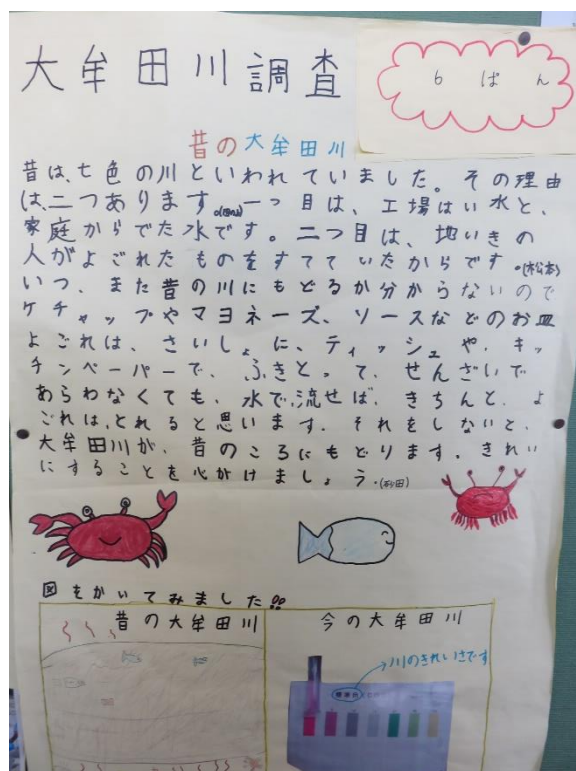 大牟田川調査
6ぱん
昔の大牟田川
昔は、七色の川といわれていました。その理由
は、二つあります。一つ目は、工場はい水と、
家庭からでた水です。二つ目は、地いきの
人がよごれたものをすてていたからです。(松本)
いつ、また昔の川にもどるか分からないので
ケチャップやマヨネーズ、ソースなどのお皿
よごれは、さいしょに、ティッシュや、キッ
チンペーパーで、ふきとって、せんざいで
あらわなくても、水で流せば、きちんと、よ
ごれは、とれると思います。それをしないと、
大牟田川が、昔のころにもどります。きれい
にすることを心がけましょう。(砂田)
図をかいてみました!!
昔の大牟田川
今の大牟田川
川のきれいさです